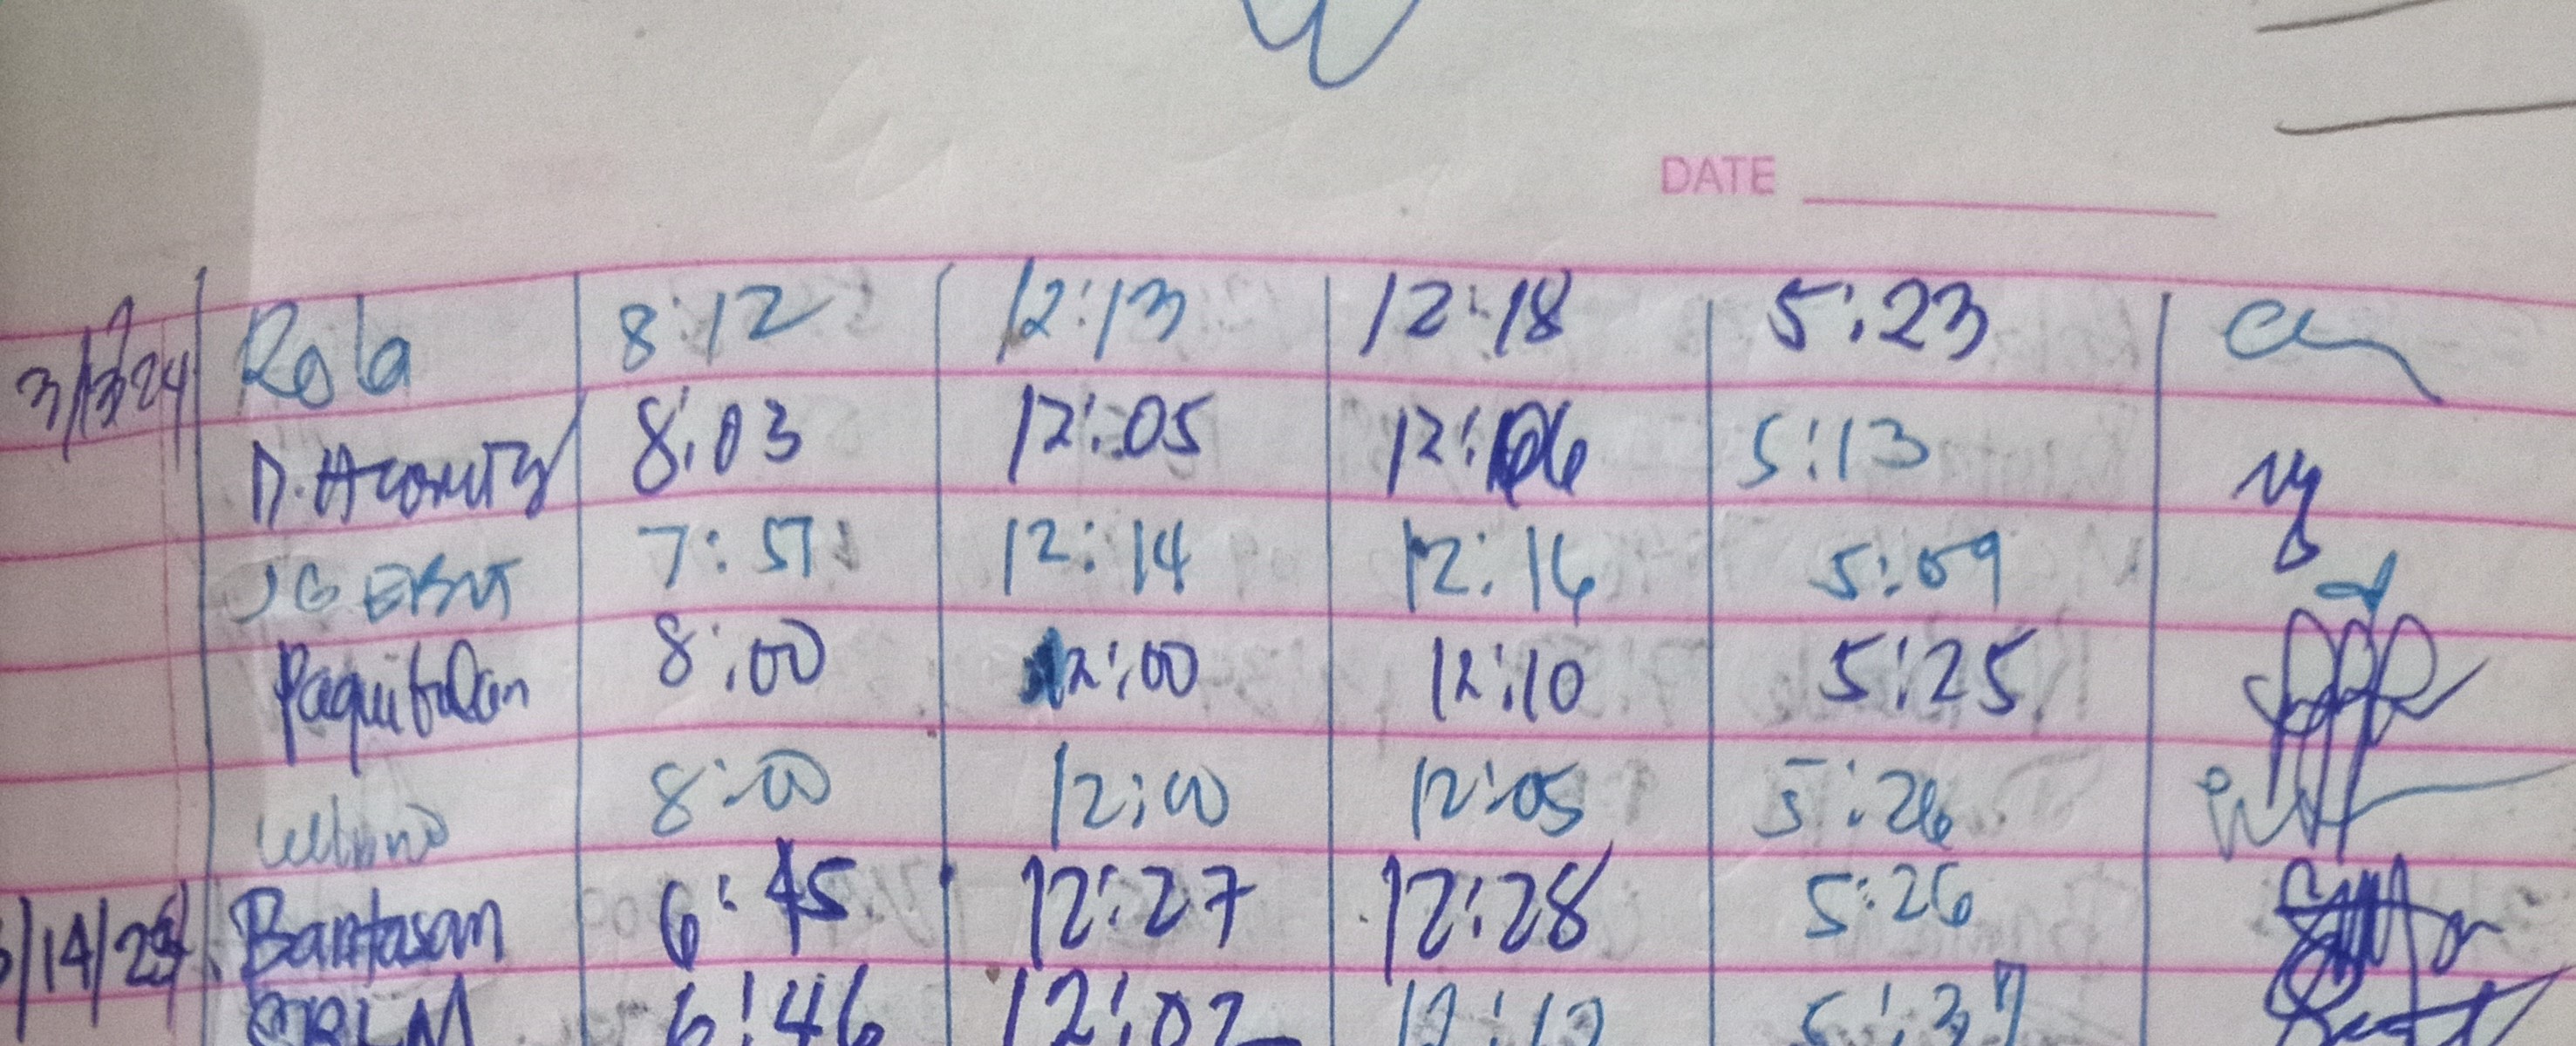 DATE
3/13/24 Rola 8:12 12:13 12:18 5:23
8:03 12:05 12:06 5:13
7:57 12:14 12:16 5:09
Paquibulan 8:00 12:00 12:10 5:25
8:00 12:00 12:05 5:26
/14/24 Bantasan 6:45 12:27 12:28 5:26
6:46 12:02 5:37